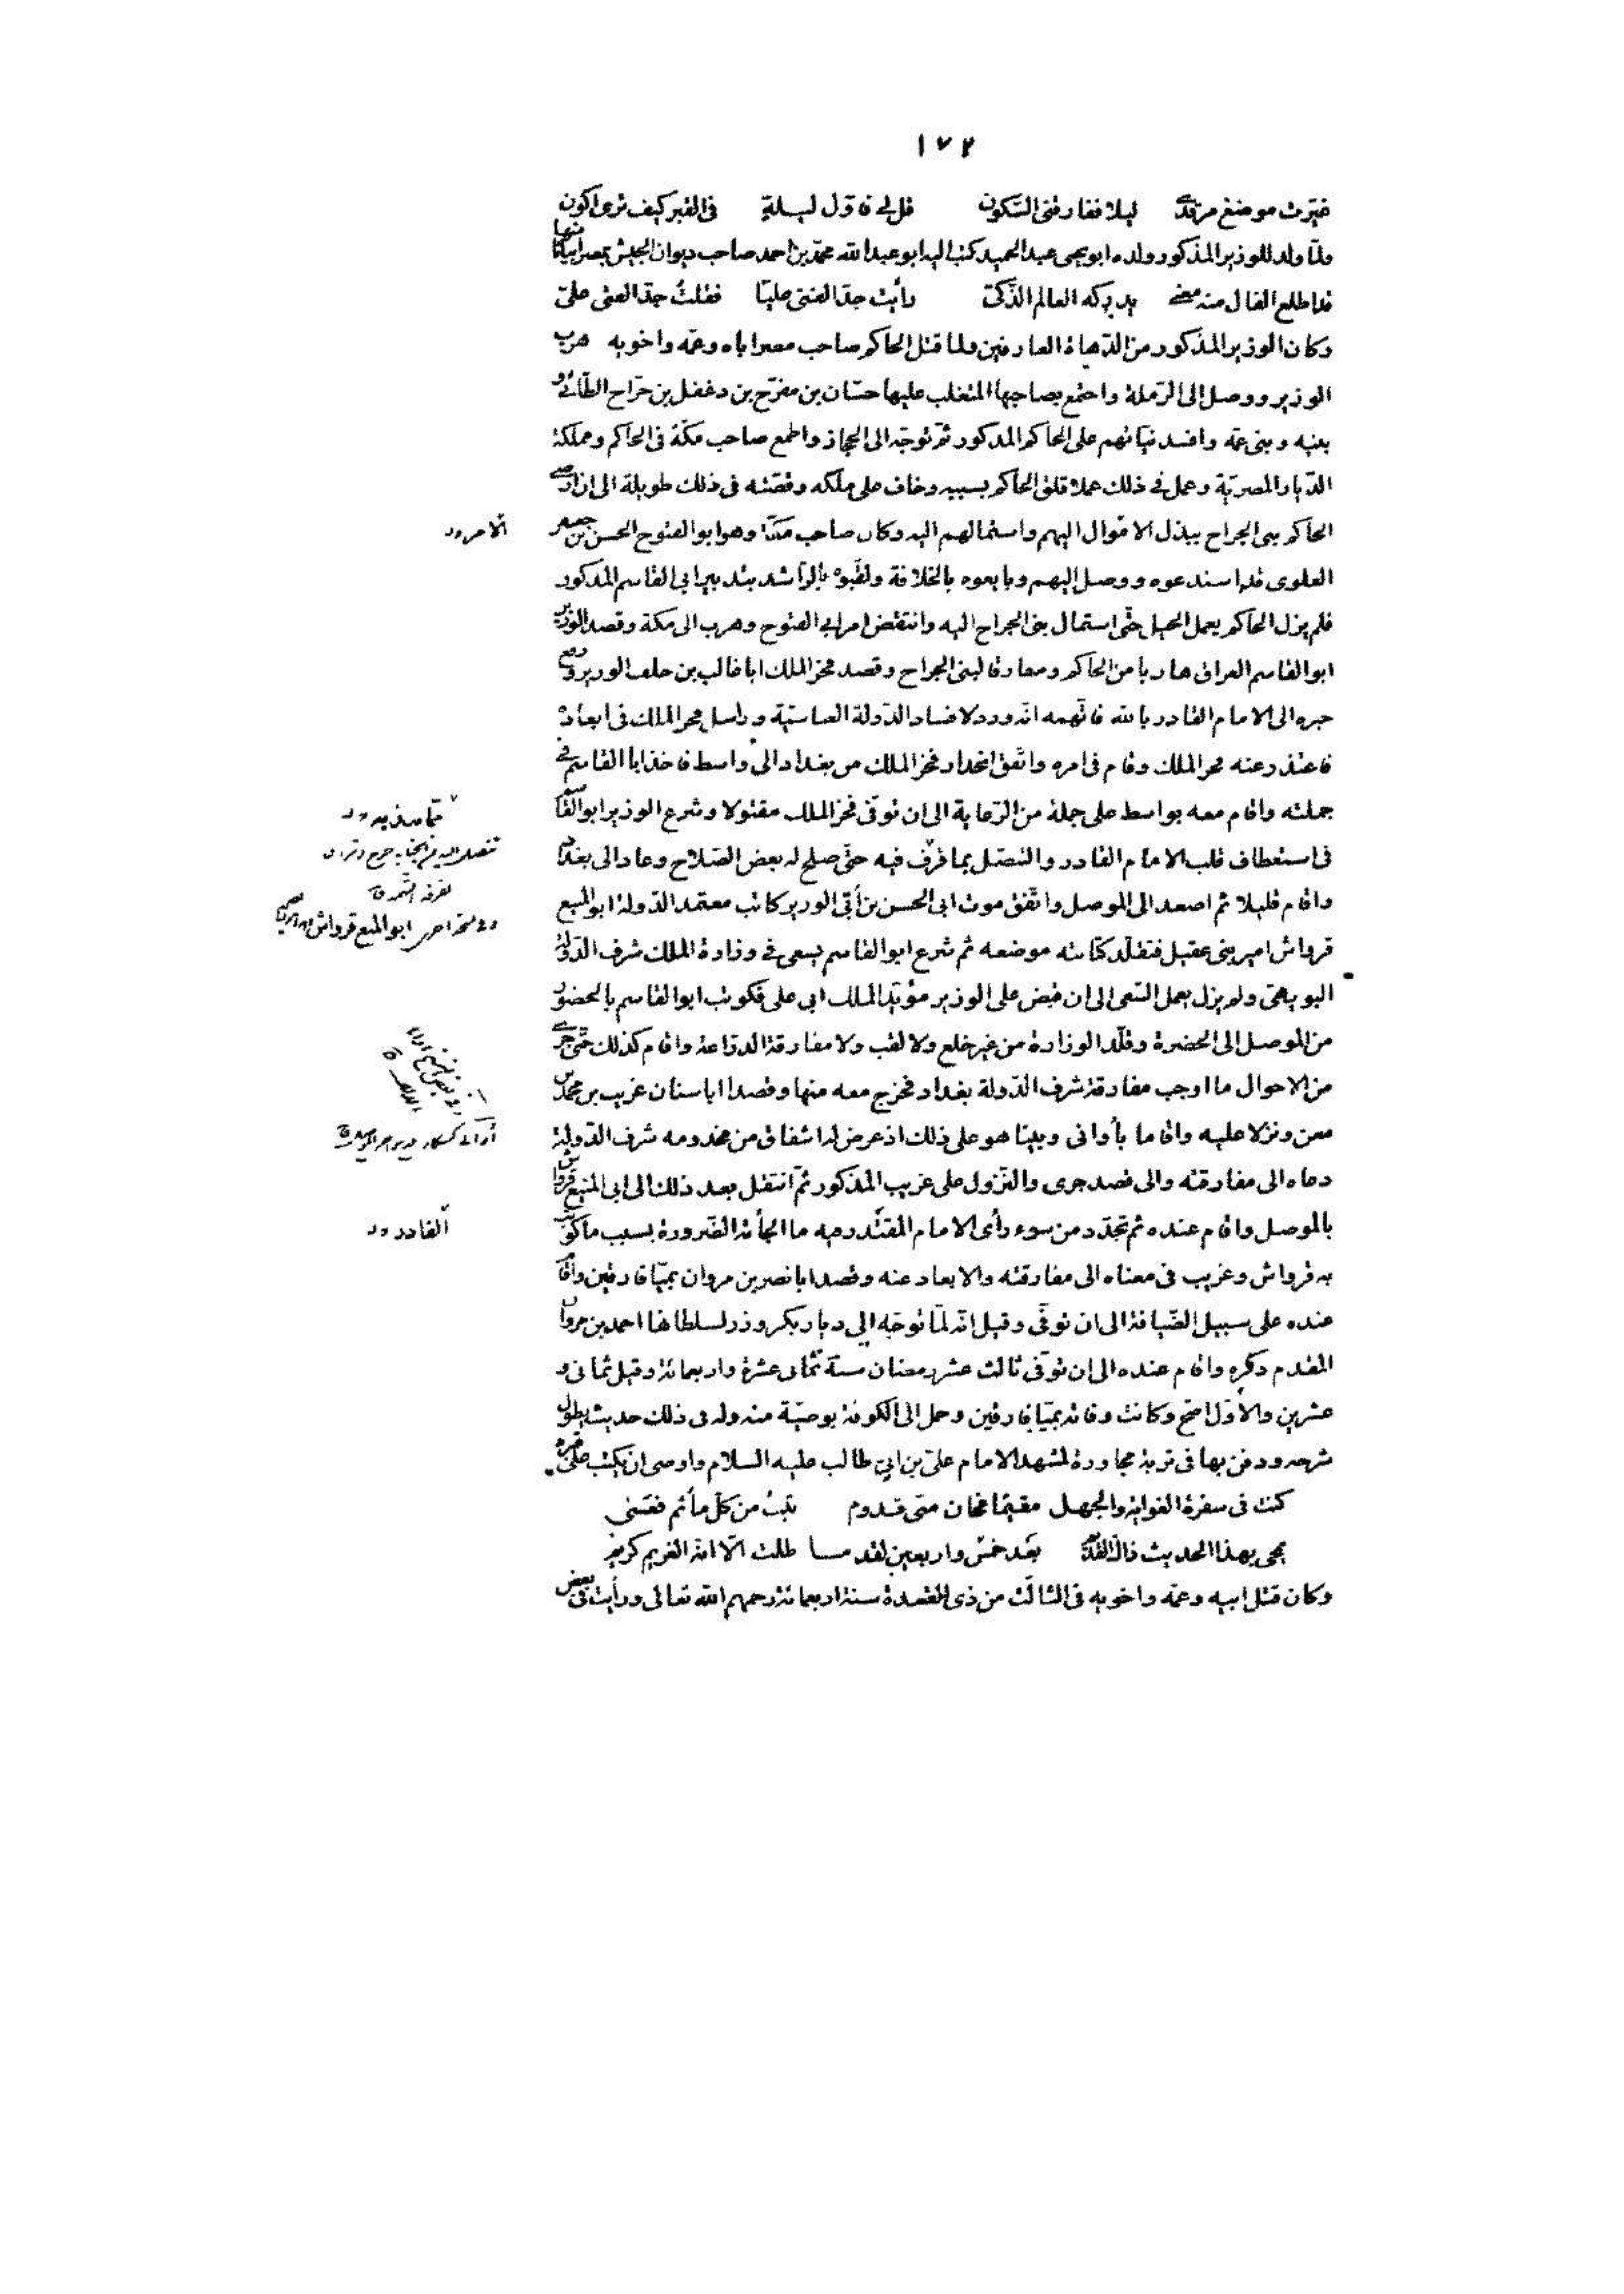 ١٧٢
غيّرت موضع مرقدي ليلا ففارقني السكون قل لي فاوّل ليلة في القبر كيف ترى اكون
ولمّا ولد للوزير المذكور ولده ابو يحيى عبد الحميد كتب اليه ابو عبد الله محمّد بن احمد صاحب ديوان الجيش بمصر ابياتا منها
قد اطلع الفال منه معنى يدركه العالم الذّكيّ رأيت جدّ الفتى عليّا فقلتُ جدّ الفتى عليّ
وكان الوزير المذكور من الدّهاة العارفين ولما قتل الحاكم صاحب مصر اباه وعمّه واخويه هرب
الوزير ووصل الى الرّملة واجتمع بصاحبها المتغلب عليها حسّان بن مفرّج بن دغفل بن جرّاح الطّائي و
بنيه وبني عمّه وافسد نيّاتهم على الحاكم المذكور ثمّ توجّه الى الحجاز واطمع صاحب مكّة في الحاكم ومملكة
الدّيار المصريّة وعمل في ذلك عملا قلق الحاكم بسببه وخاف على ملكه وقصّته في ذلك طويلة الى ان ارضى
الحاكم بني الجراح ببذل الاموال اليهم واستمالهم اليه وكان صاحب مكّة وهو ابو الفتوح الحسن بن جعفر
العلوي قد استدعوه ووصل اليهم وبايعوه بالخلافة ولقّبوه بالرّاشد بتدبير ابي القاسم المذكور
فلم يزل الحاكم يعمل الحيل حتّى استمال بني الجراح اليه وانتقض امر ابي الفتوح وهرب الى مكة وقصد الوزير
ابو القاسم العراق هاربا من الحاكم ومفارقا لبني الجراح وقصد فخر الملك ابا غالب بن خلف الوزير ورفع
خبره الى الامام القادر بالله فاتّهمه انّه ورد لافساد الدّولة العباسيّة وراسل فخر الملك في ابعاده
فاعتذر عنه فخر الملك وقام في امره واتّفق انحدار فخر الملك من بغداد الى واسط فاخذ ابا القاسم في
جملته واقام معه بواسط على جملة من الرّعاية الى ان توفّى فخر الملك مقتولا وشرع الوزير ابو القاسم
في استعطاف قلب الامام القادر والتنصّل بما قرف فيه حتّى صلح له بعض الصّلاح وعاد الى بغداد
واقام قليلا ثم اصعد الى الموصل واتّفق موت ابي الحسن بن أبي الوزير كاتب معتمد الدّولة ابو المنيع
قرواش امير بني عقيل فتقلّد كتابته موضعه ثم شرع ابو القاسم يسعى في وزارة الملك شرف الدّولة
البويهيّ ولم يزل يعمل السّعى الى ان قبض على الوزير مؤيّد الملك ابي علي فكوتب ابو القاسم بالحضور
من الموصل الى الحضرة وقلّد الوزارة من غير خلع ولا لقب ولا مفارقة الدرّاعة واقام كذلك حتّى جرى
من الاحوال ما اوجب مفارقة شرف الدّولة بغداد فخرج معه منها وقصدا ابا سنان غريب بن محمّد بن
معن ونزلا عليه واقاما بأوانى وبينا هو على ذلك اذ عرض له اشفاق من مخدومه شرف الدّولة
دعاه الى مفارقته والى قصد جرى والنّزول على غريب المذكور ثمّ انتقل بعد ذلك الى ابي المنيع قرواش
بالموصل واقام عنده ثم تجدّد من سوء رأى الامام المقتدر فيه ما الجأته الضّرورة بسبب ما كوتب
به قرواش وغريب في معناه الى مفارقته والابعاد عنه وقصد ابا نصر بن مروان بميّافارقين واقام
عنده على سبيل الضّيافة الى ان توفّى وقيل انّه لمّا توجّه الى ديار بكر وزر لسلطانها احمد بن مروان
المقدم ذكره واقام عنده الى ان توفّى ثالث عشر رمضان سنة ثمانى عشرة واربعمائة وقيل ثمانى و
عشرين والاوّل اصحّ وكانت وفاته بميّافارقين وحمل الى الكوفة بوصيّة منه وله في ذلك حديث يطول
شرحه ودفن بها في تربة مجاورة لمشهد الامام عليّ بن ابي طالب عليه السلام واوصى ان يكتب على قبره
كنت في سفرة الغواية والجهل مقيما فحان منّي قدوم تبتُ من كلّ مأثم فعسى
يمحى بهذا الحديث ذاك القديم بعد خمس واربعين لقد ما طلت الّا انّ الغريم كريم
وكان قتل ابيه وعمّه واخويه في الثالث من ذي القعدة سنة اربعمائة رحمهم الله تعالى ورأيت في بعض
القادر